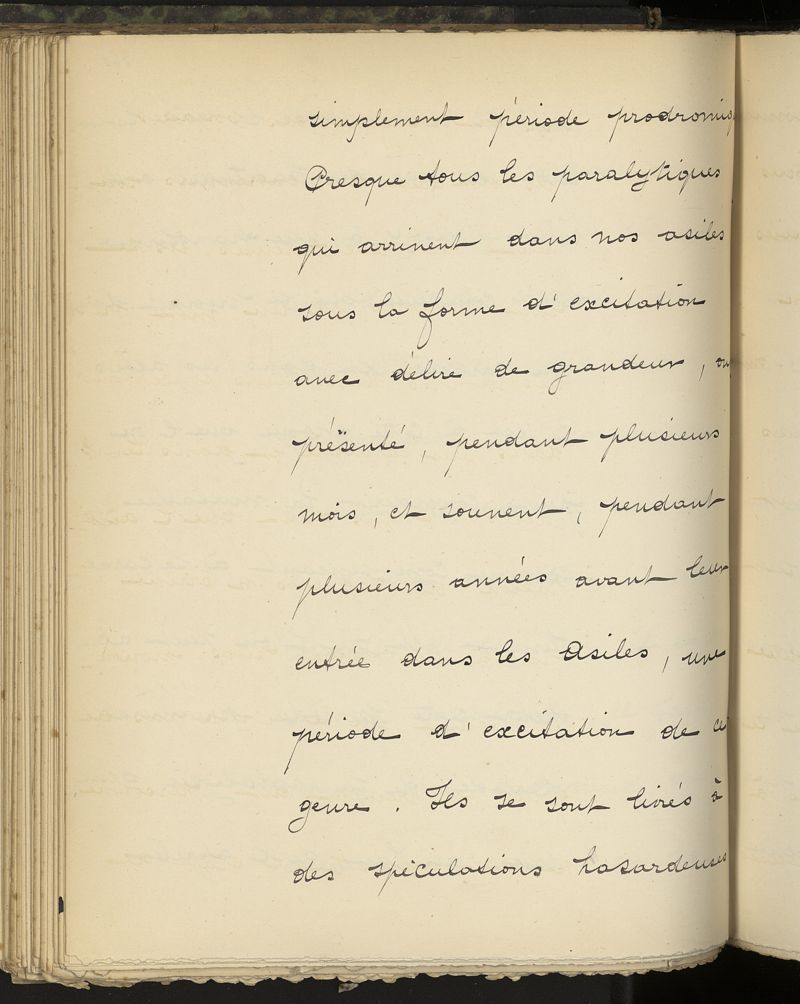 simplement période prodromiq
Presque tous les paralytiques
qui arrivent dans nos asiles
sous la forme d'excitation
avec délire de grandeur,
présenté, pendant plusieurs
mois, et souvent, pendant
plusieurs années avant leur
entrée dans les Asiles, une
période d'excitation de ce
genre. Ils se sont livrés à
des spéculations hasardeuses